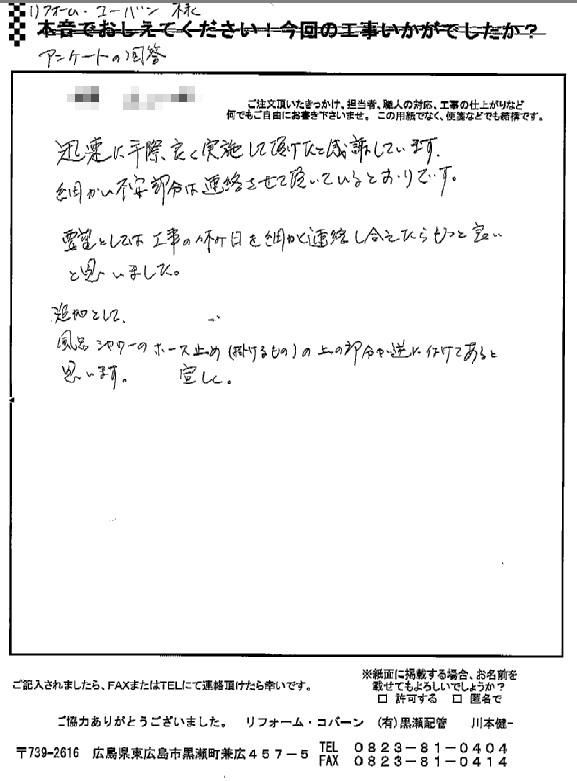 リフォーム・コーバン 様
本音でおしえてください!今回の工事いかがでしたか?
アンケートの回答
ご注文頂いたきっかけ、担当者、職人の対応、工事の仕上がりなど
何でもご自由にお書き下さいませ。この用紙でなく、便箋などでも結構です。
迅速に手際良く実施して頂けたと感謝しています。
細かい不安部分は連絡させて頂いているとおりです。
要望としては工事の 日を細かく連絡し合えたらもっと良い
と思いました。
追加として、
風呂シャワーのホース止め(掛けるもの)の上の部分が逆に付けてあると
思います。 宜しく。
※紙面に掲載する場合、お名前を
載せてもよろしいでしょうか?
ご記入されましたら、FAXまたはTELにて連絡頂けたら幸いです。
□ 許可する □ 匿名で
ご協力ありがとうございました。 リフォーム・コバーン (有)黒瀬配管 川本健一
〒739-2616 広島県東広島市黒瀬町兼広457-5 TEL 0823-81-0404
FAX 0823-81-0414